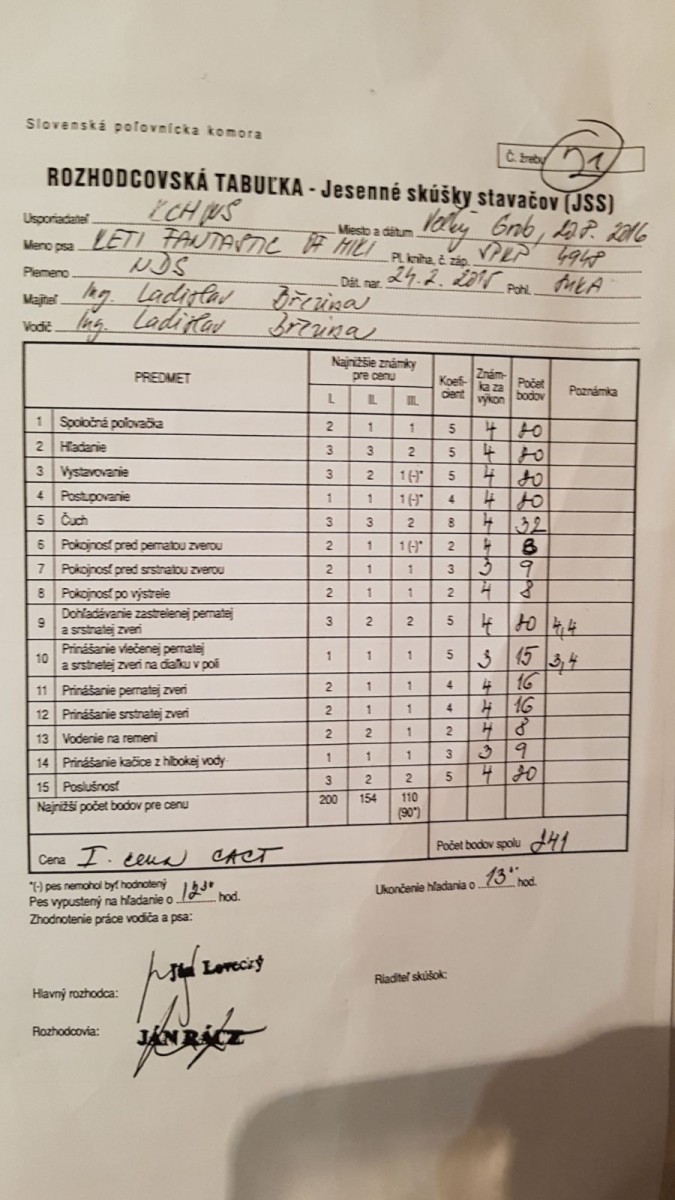 Slovenská poľovnícka komora
Č. žrebu 21
ROZHODCOVSKÁ TABUĽKA - Jesenné skúšky stavačov (JSS)
Usporiadateľ KCHNS Miesto a dátum Veľký Grob, 20.8. 2016
Meno psa KETI FANTASTIC OF MIKI Pl. kniha, č. záp. SPKP 4948
Plemeno NDS Dát. nar. 24.2.2015 Pohl. suka
Majiteľ Ing. Ladislav Březina
Vodič Ing. Ladislav Březina
PREDMET Najnižšie známky pre cenu I. II. III. Koeficient Známka za výkon Počet bodov Poznámka
1 Spoločná poľovačka 2 1 1 5 4 20
2 Hľadanie 3 3 2 5 4 20
3 Vystavovanie 3 2 1 (-)* 5 4 20
4 Postupovanie 1 1 1 (-)* 4 4 20
5 Čuch 3 3 2 8 4 32
6 Pokojnosť pred pernatou zverou 2 1 1 (-)* 2 4 8
7 Pokojnosť pred srstnatou zverou 2 1 1 3 3 9
8 Pokojnosť po výstrele 2 1 1 2 4 8
9 Dohľadávanie zastrelenej pernatej
a srstnatej zveri 3 2 2 5 4 20 4,4
10 Prinášanie vlečenej pernatej
a srstnetej zveri na diaľku v poli 1 1 1 5 3 15 3,4
11 Prinášanie pernatej zveri 2 1 1 4 4 16
12 Prinášanie srstnatej zveri 2 1 1 4 4 16
13 Vodenie na remeni 2 2 1 2 4 8
14 Prinášanie kačice z hlbokej vody 1 1 1 3 3 9
15 Poslušnosť 3 2 2 5 4 20
Najnižší počet bodov pre cenu 200 154 110
(90*)
Cena I. cena CACT Počet bodov spolu 241
*(-) pes nemohol byť hodnotený
Pes vypustený na hľadanie o 12³⁰ hod. Ukončenie hľadania o 13 hod.
Zhodnotenie práce vodiča a psa:
Lovecký
Hlavný rozhodca: Riaditeľ skúšok:
Rozhodcovia: JÁN RÁCZ